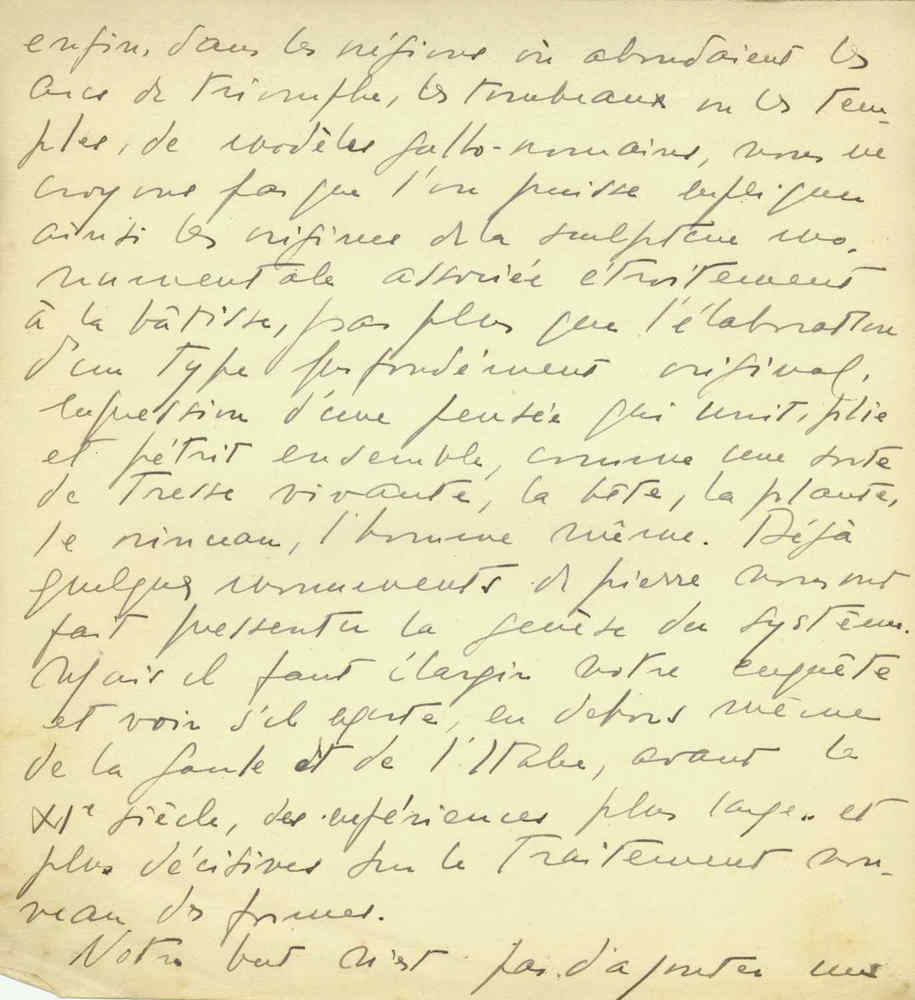 enfin, dans les régions où abondaient les
arcs de triomphe, les tombeaux ou les tem-
ples, de modèles gallo-romains, nous ne
croyons pas que l'on puisse expliquer
ainsi les origines de la sculpture mo-
numentale associée étroitement
à la bâtisse, pas plus que l'élaboration
d'un type profondément original,
expression d'une pensée qui unit, plie
et pétrit ensemble, comme une sorte
de tresse vivante, la bête, la plante,
le rinceau, l'homme même. Déjà
quelques monuments de pierre nous ont
fait pressentir la genèse du système.
Mais il faut élargir notre enquête
et voir s'il existe, en dehors même
de la Gaule et de l'Italie, avant le
XIe siècle, des expériences plus larges et
plus décisives sur le traitement nou-
veau des formes.
Notre but n'est pas d'ajouter une